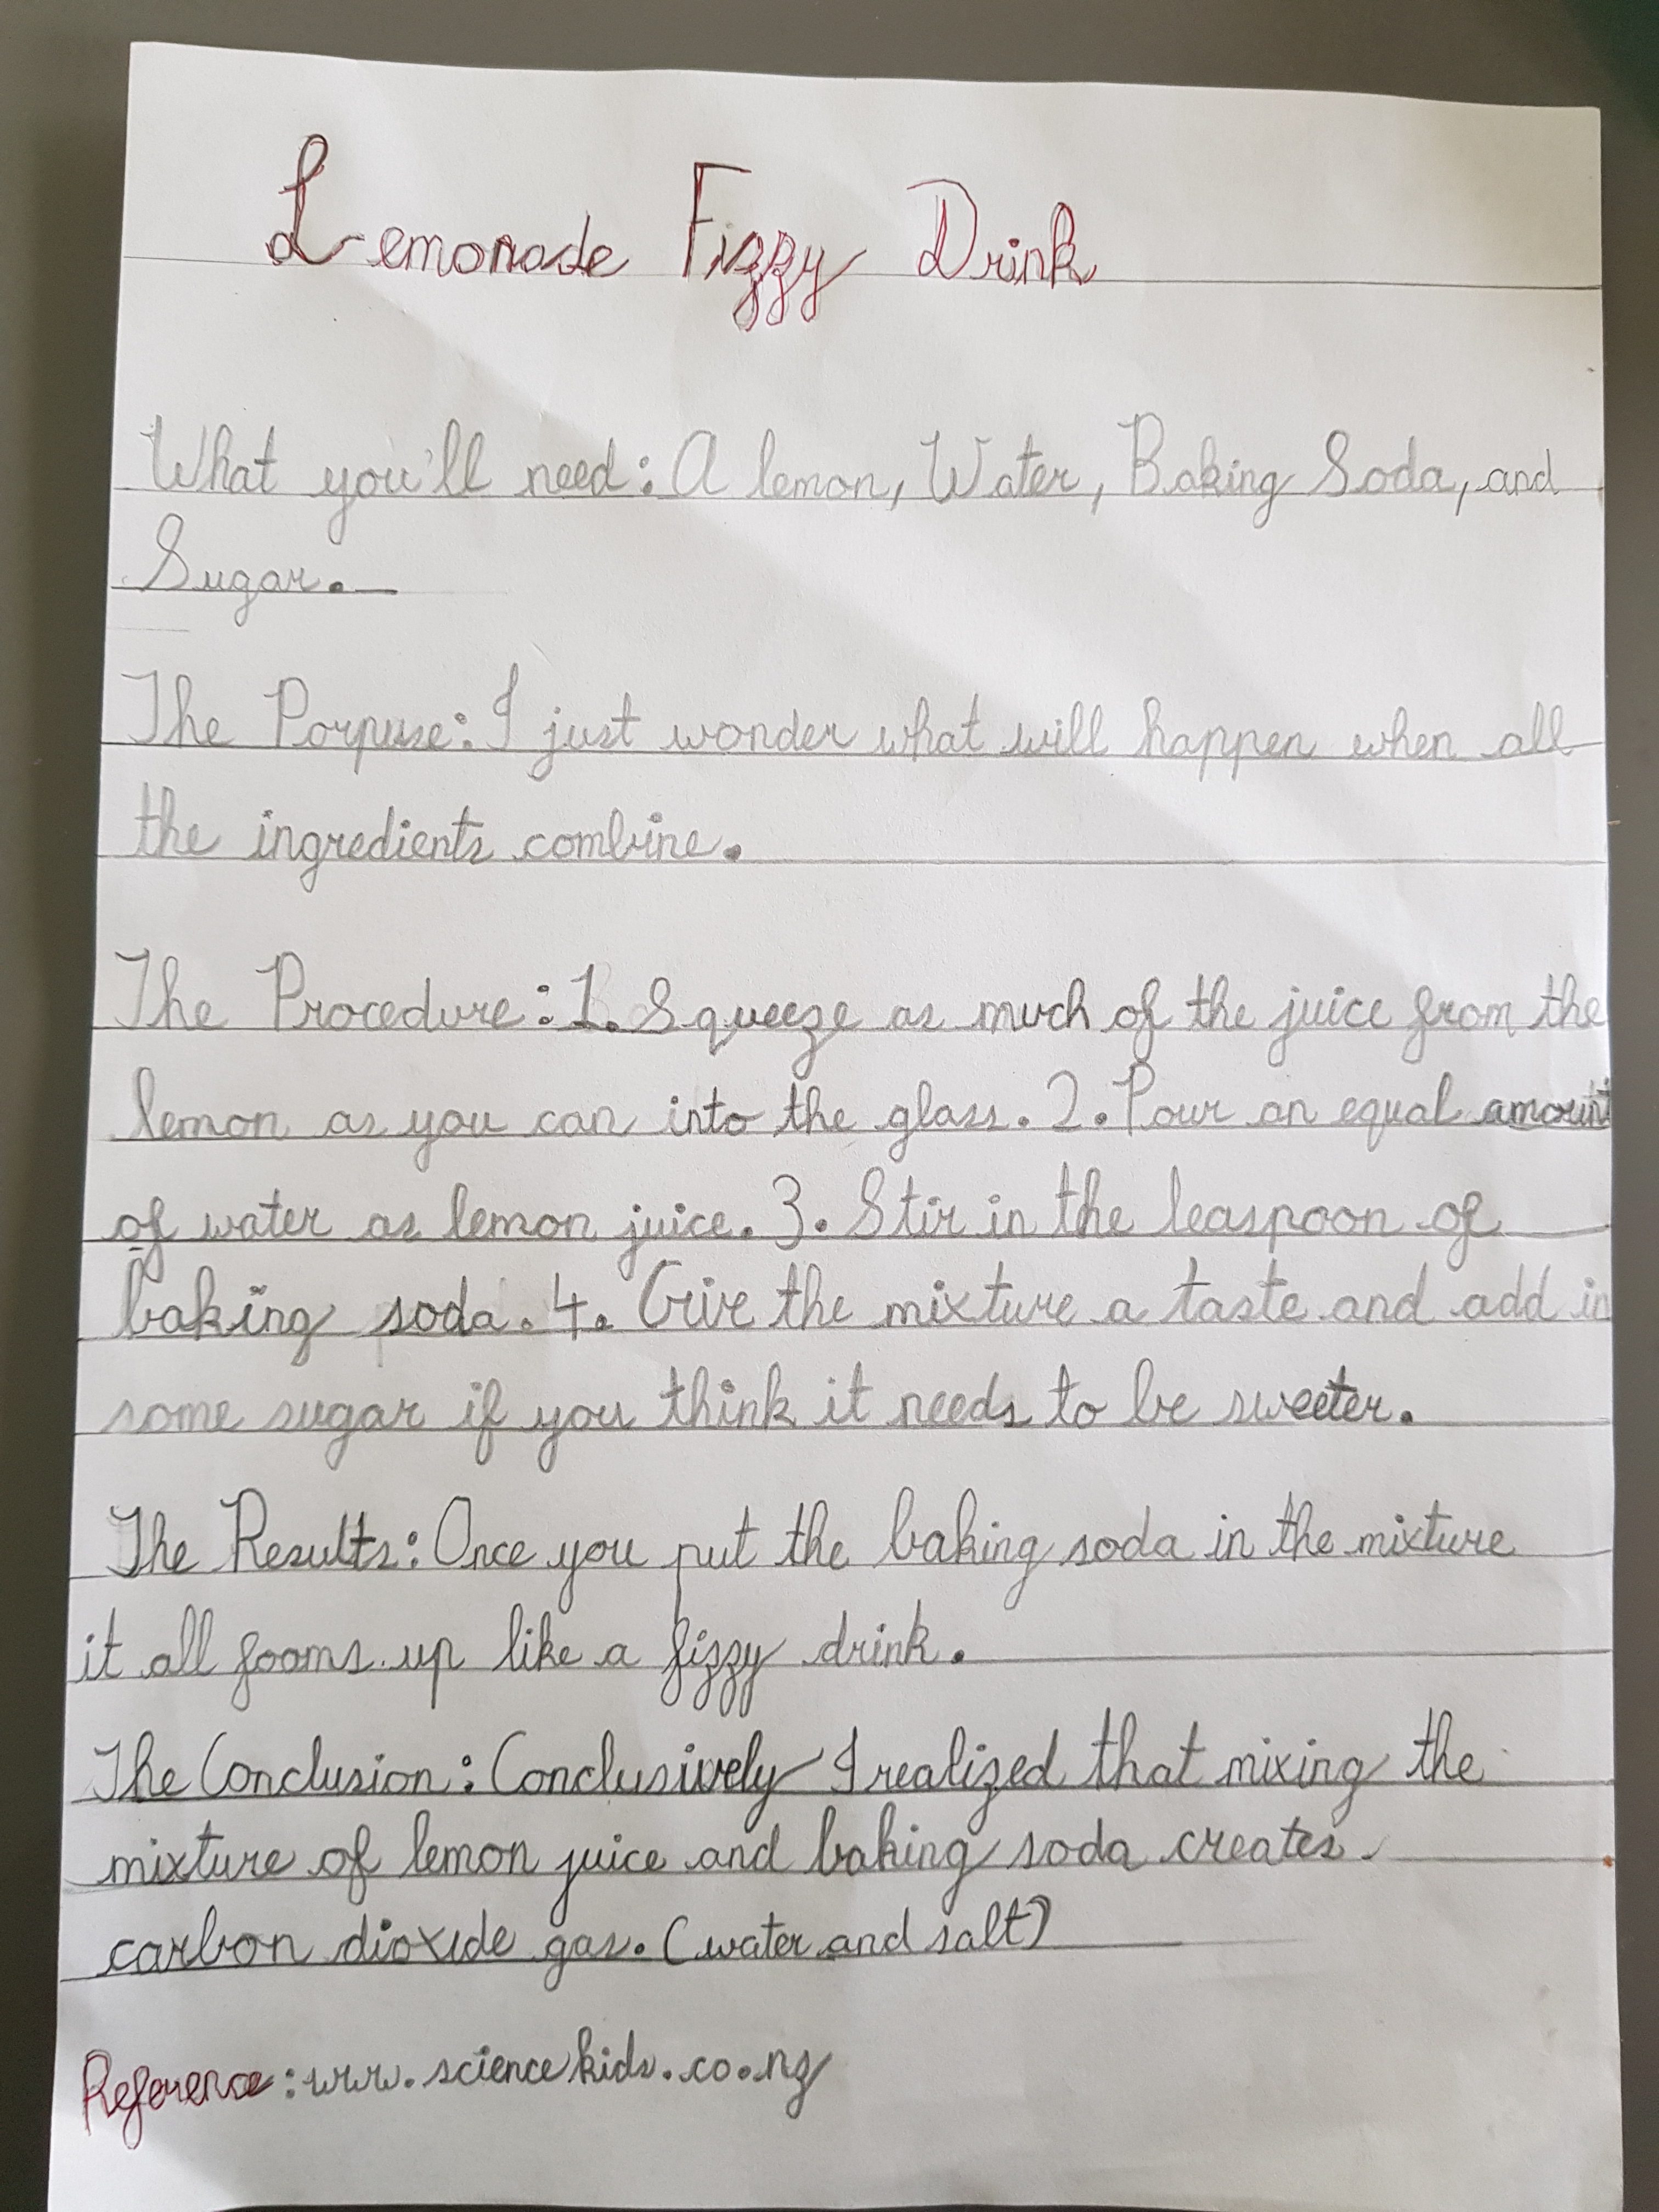 Lemonade Fizzy Drink
What you'll need: A lemon, Water, Baking Soda, and
Sugar.
The Porpuse: I just wonder what will happen when all
the ingredients combine.
The Procedure: 1. Squeeze as much of the juice from the
lemon as you can into the glass. 2. Pour an equal amount
of water as lemon juice. 3. Stir in the leaspoon of
baking soda. 4. Give the mixture a taste and add in
some sugar if you think it needs to be sweeter.
The Results: Once you put the baking soda in the mixture
it all fooms up like a fizzy drink.
The Conclusion: Conclusively I realized that mixing the
mixture of lemon juice and baking soda creates
carbon dioxide gas. (water and salt)
Reference: www.sciencekids.co.nz